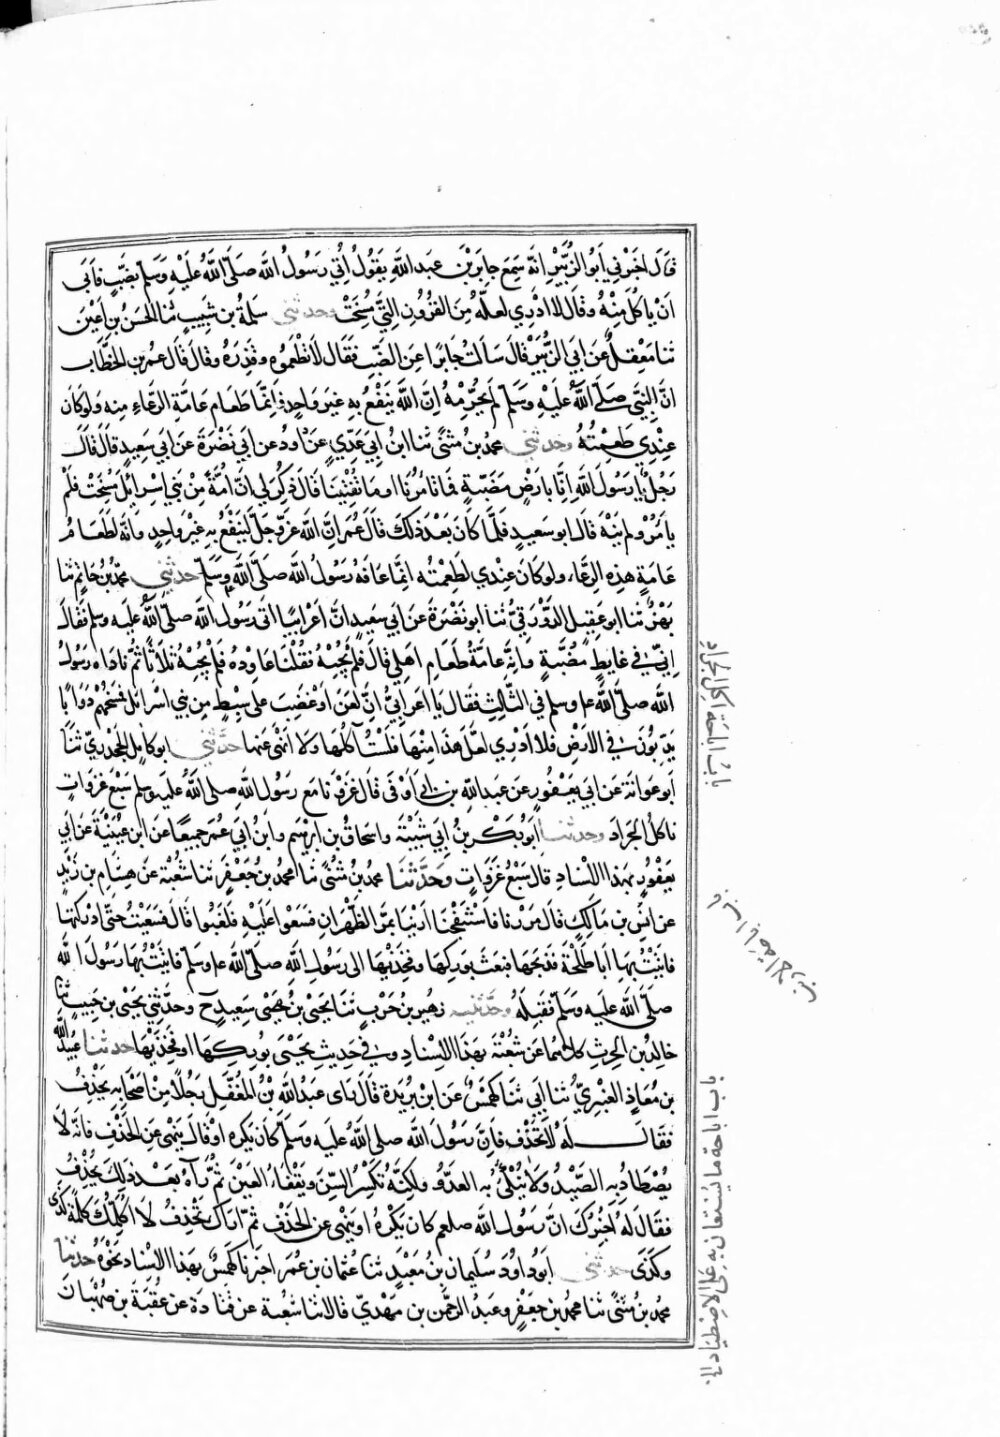 قال اخبرني ابو الزبير انه سمع جابر بن عبد الله يقول أتي رسول الله صلى الله عليه وسلم بضب فابى
ان ياكل منه وقال لا ادري لعله من القرون التي مسخت وحدثني سلمة بن شبيب ثنا الحسن بن اعين
ثنا معقل عن ابي الزبير قال سالت جابرا عن الضب فقال لا تطعموه وقذره وقال قال عمر بن الخطاب
ان النبي صلى الله عليه وسلم لم يحرمه إن الله ينفع به غير واحد فانما طعام عامة الرعاء منه ولو كان
عندي طعمته وحدثني محمد بن مثنى ثنا ابن ابي عدي عن داود عن ابي نضرة عن ابي سعيد قال قال
رجل يا رسول الله انا بارض مضبة فما تامرنا او ما تفتينا قال ذكر لي ان امة من بني اسرائيل مسخت فلم
يامر ولم ينه قال ابو سعيد فلما كان بعد ذلك قال عمر ان الله عز وجل لينفع به غير واحد وانه لطعام
عامة هذه الرعاء ولو كان عندي لطعمته انما عافه رسول الله صلى الله عليه وسلم حدثني محمد بن حاتم ثنا
بهز ثنا ابو عقيل الدورقي ثنا ابو نضرة عن ابي سعيد ان اعرابيا اتى رسول الله صلى الله عليه وسلم فقال
اني في غايط مضبة وانه عامة طعام اهلي قال فلم يجبه فقلنا عاوده فلم يجبه ثلاثا ثم ناداه رسول
الله صلى الله عليه وسلم في الثالث فقال يا اعرابي ان لعن او غضب على سبط من بني اسرائل فمسخهم دوابا
يدبون في الارض فلا ادري لعل هذا منها فلست آكلها ولا انهى عنها حدثني ابو كامل الجحدري ثنا
ابو عوانة عن ابي يعفور عن عبد الله بن ابي اوفى قال غزونا مع رسول الله صلى الله عليه وسلم سبع غزوات
ناكل الجراد وحدثنا ابو بكر بن ابي شيبة واسحاق بن ابرهيم وابن ابي عمر جميعا عن ابن عيينة عن ابي
يعفور بهذا الاسناد قال سبع غزوات وحدثنا محمد بن مثنى ثنا محمد بن جعفر ثنا شعبة عن هشام بن زيد
عن انس بن مالك قال مررنا فاستنفجنا ارنبا بمر الظهران فسعوا عليه فلغبوا قال فسعيت حتى ادركتها
فاتيت بها ابا طلحة فذبحها فبعث بوركها وفخذيها الى رسول الله صلى الله عليه وسلم فاتيت بها رسول الله
صلى الله عليه وسلم فقبله وحدثنيه زهير بن حرب ثنا يحيى بن سعيد ح وحدثني يحيى بن حبيب ثنا
خالد بن الحرث كلاهما عن شعبة بهذا الاسناد وفي حديث يحيى بوركها او فخذيها حدثنا عبيد الله
بن معاذ العنبري ثنا ابي ثنا كهمس عن ابن بريدة قال راى عبد الله بن المغفل رجلا من اصحابه يخذف
فقال له لا تخذف فان رسول الله صلى الله عليه وسلم كان يكره او قال ينهى عن الخذف فانه لا
يصطاد به الصيد ولا ينكأ به العدو ولكنه تكسر السن ويفقاء العين ثم رآه بعد ذلك يخذف
فقال له اخبرك ان رسول الله صلعم كان يكره او ينهى عن الخذف ثم اراك تخذف لا اكلمك كلمة كذى
وكذى حدثني ابو داود سليمان بن معبد ثنا عثمان بن عمر اخبرنا كهمس بهذا الاسناد نحوه حدثنا
محمد بن مثنى ثنا محمد بن جعفر وعبد الرحمن بن مهدي قالا ثنا شعبة عن قتادة عن عقبة بن صهبان
باب اباحة اكل الجراد
باب اباحة ما يستعان به على الاصطياد